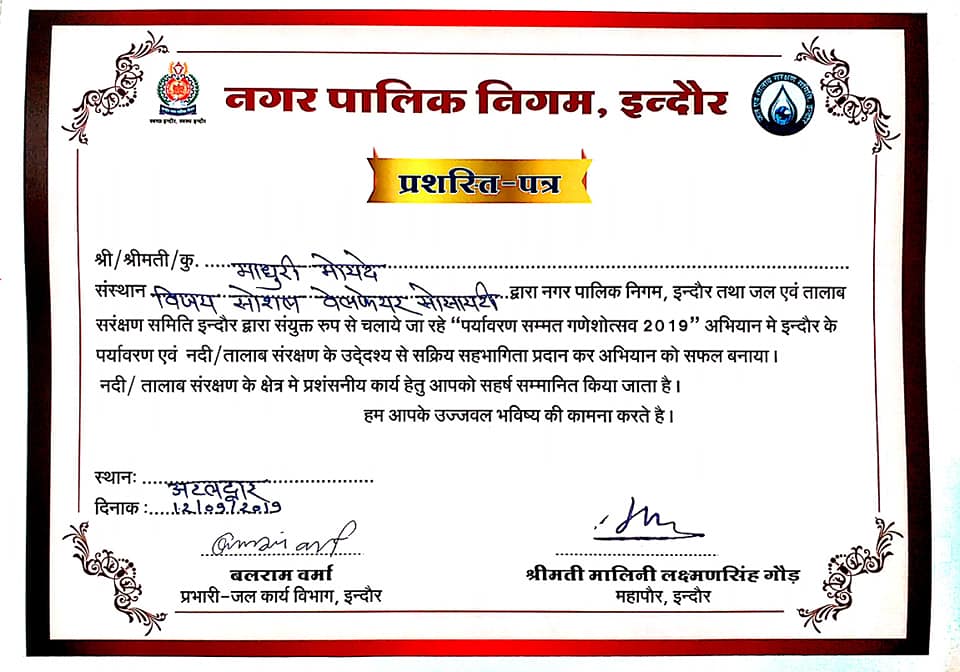 नगर पालिक निगम, इन्दौर
प्रशस्ति-पत्र
श्री/श्रीमती/कु. माधुरी मोयदे
संस्थान विजय सोशल वेलफेयर सोसायटी द्वारा नगर पालिक निगम, इन्दौर तथा जल एवं तालाब
सरंक्षण समिति इन्दौर द्वारा संयुक्त रुप से चलाये जा रहे “पर्यावरण सम्मत गणेशोत्सव 2019” अभियान मे इन्दौर के
पर्यावरण एवं नदी/तालाब संरक्षण के उद्देश्य से सक्रिय सहभागिता प्रदान कर अभियान को सफल बनाया।
नदी/ तालाब संरक्षण के क्षेत्र मे प्रशंसनीय कार्य हेतु आपको सहर्ष सम्मानित किया जाता है।
हम आपके उज्जवल भविष्य की कामना करते है।
स्थानः अटलद्वार
दिनाक : 12/09/2019
बलराम वर्मा
प्रभारी-जल कार्य विभाग, इन्दौर
श्रीमती मालिनी लक्ष्मणसिंह गौड़
महापौर, इन्दौर